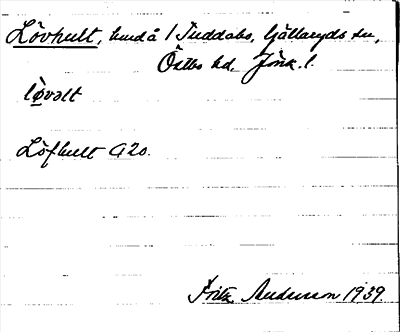 Lövhult, hmd å Tuddabo, Gällaryds sn,
Östbo hd. Jönk. l.
lǫ̀vəlt
Löfhult A 20.
Fritz Anderson 1939.